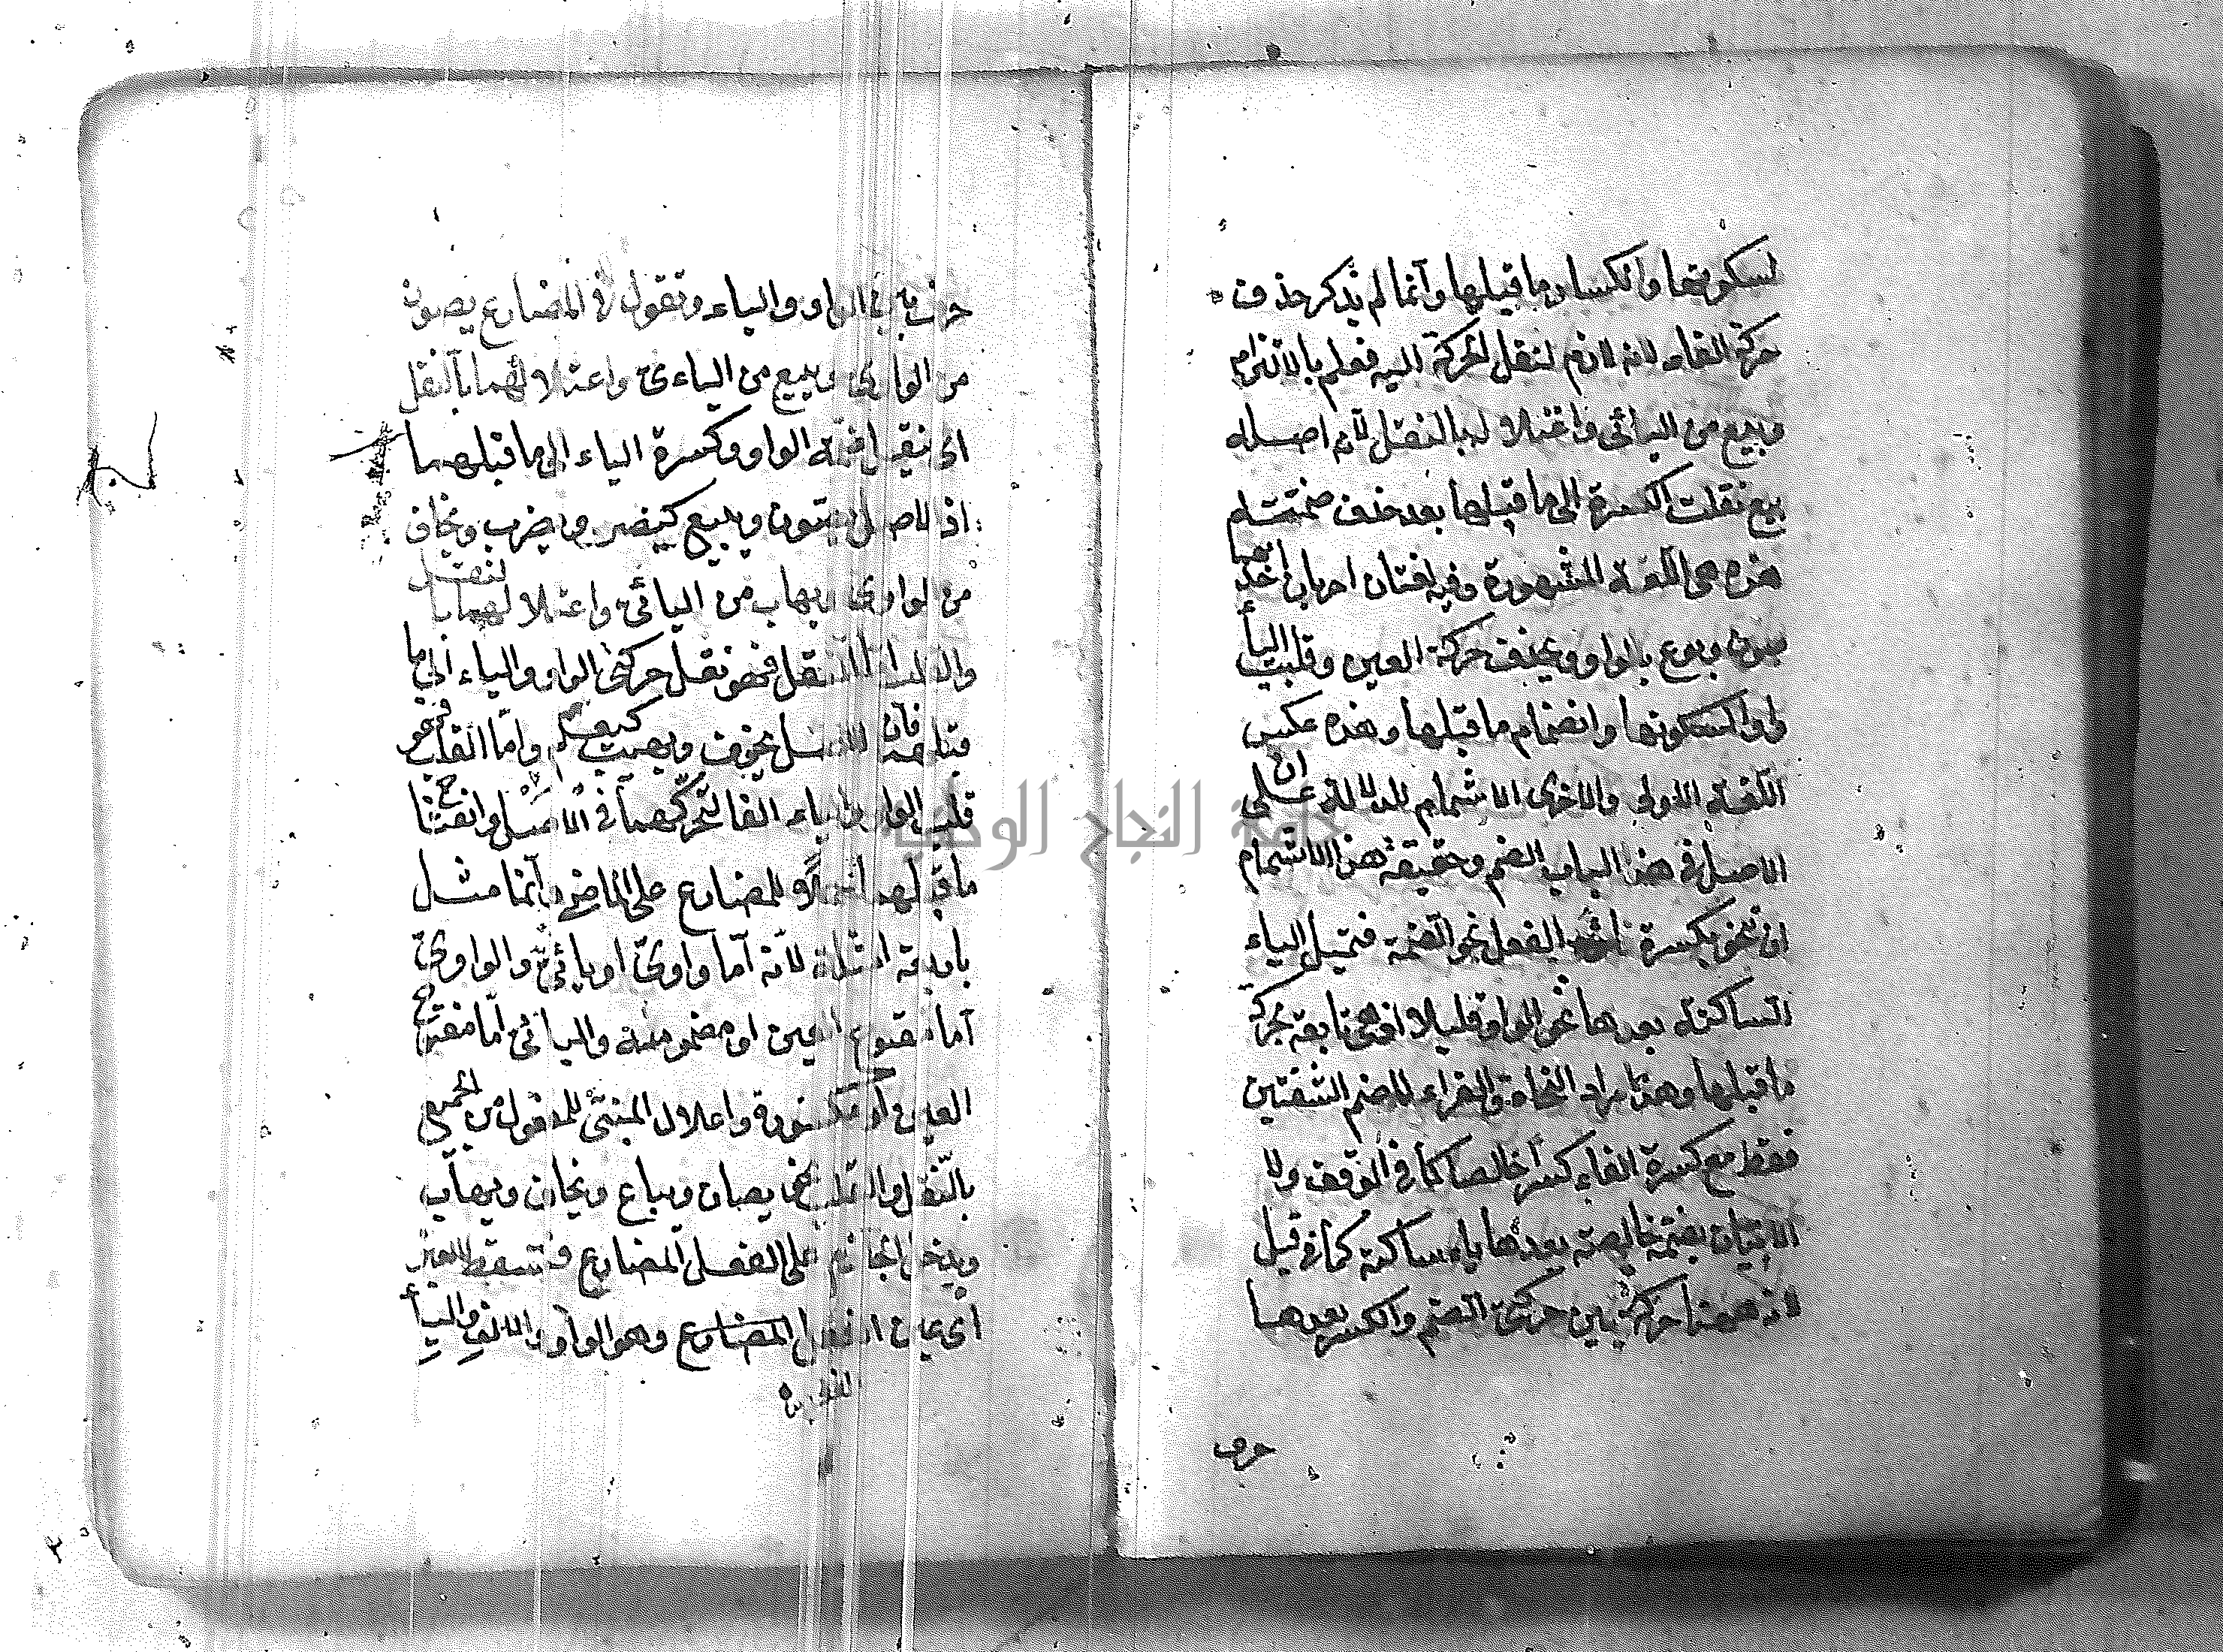 لسكونها وانكسار ما قبلها وانما لم يذكر حذف
حركة الفاء لانه لازم لنقل الحركة اليه فعلم بالالتزام
وبيع من اليائي واعتلاله بالنقل لان اصله
بيع نقلت الكسرة الى ما قبلها بعد حذف ضمته
هذه هي اللغة المشهورة وفيه لغتان اخريان احديهما
صون وبوع بالواو وبحذف حركة العين وقلبت الياء
واوا لسكونها وانضمام ما قبلها وهذه عكس
اللغة الاولى والاخرى الاشمام للدلالة على ان
الاصل في هذا الباب الضم وحقيقة هذا الاشمام
ان تنحو بكسرة فاء الفعل نحو الضمة فتميل الياء
الساكنة بعدها نحو الواو قليلا اذ هي تابعة لحركة
ما قبلها وهذا مراد النحاة والقراء لا ضم الشفتين
فقط مع كسرة الفاء كسرا خالصا كما في الوقف ولا
الاتيان بضمة خالصة بعدها ياء ساكنة كما في قيل
لان ههنا حركة بين حركتي الضم والكسر بعدها
حرف
حرف بين الواو والياء وتقول في المضارع يصون
من الواوي ويبيع من الياءي واعتلالهما بالنقل
اى نقل ضمة الواو وكسرة الياء الى ما قبلهما
اذ الاصل يصون ويبيع كينصر ويضرب ويخاف
من الواوي ويهاب من اليائي واعتلالهما بالنقل
والقلب اما النقل فهو نقل حركتي الواو والياء الى ما
قبلهما فان الاصل يخوف ويهيب كيعلم واما القلب فهو
قلب الواو والياء الفا لتحركهما في الاصل وانفتاح
ما قبلهما حملا للمضارع على الماضي وانما مثل
باربعة امثلة لانه اما واوي او يائي والواوي
اما مفتوح العين او مضمومه واليائي اما مفتوح
العين او مكسورة واعلال المبني للمفعول من الجميع
بالنقل والقلب نحو يصان ويباع ويخاف ويهاب
ويدخل الجازم على الفعل المضارع فتسقط العين
اى عين الفعل المضارع وهو الواو والالف والياء
جامعة النجاح الوطنية